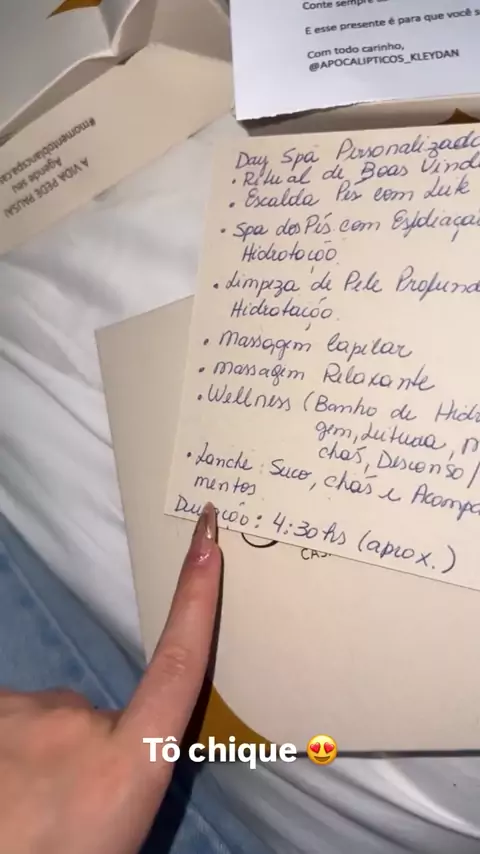 Conte sempre
E esse presente é para que você s
Com todo carinho,
@APOCALIPTICOS_KLEYDAN
A VIDA PEDE PAUSA!
Agende seu
Day Spa Personalizado
• Ritual de Boas Vind
• Escalda Pés com
• Spa dos Pés com Esfoliaçã
Hidratação
• Limpeza de Pele Profund
Hidratação.
• Massagem Capilar
• Massagem Relaxante
• Wellness (Banho de Hidr
gem, Leitura, M
chás, Descanso/
• Lanche: Suco, chás e Acompa
mentos
Duração: 4:30hs (aprox.)
CAS
Tô chique 😍